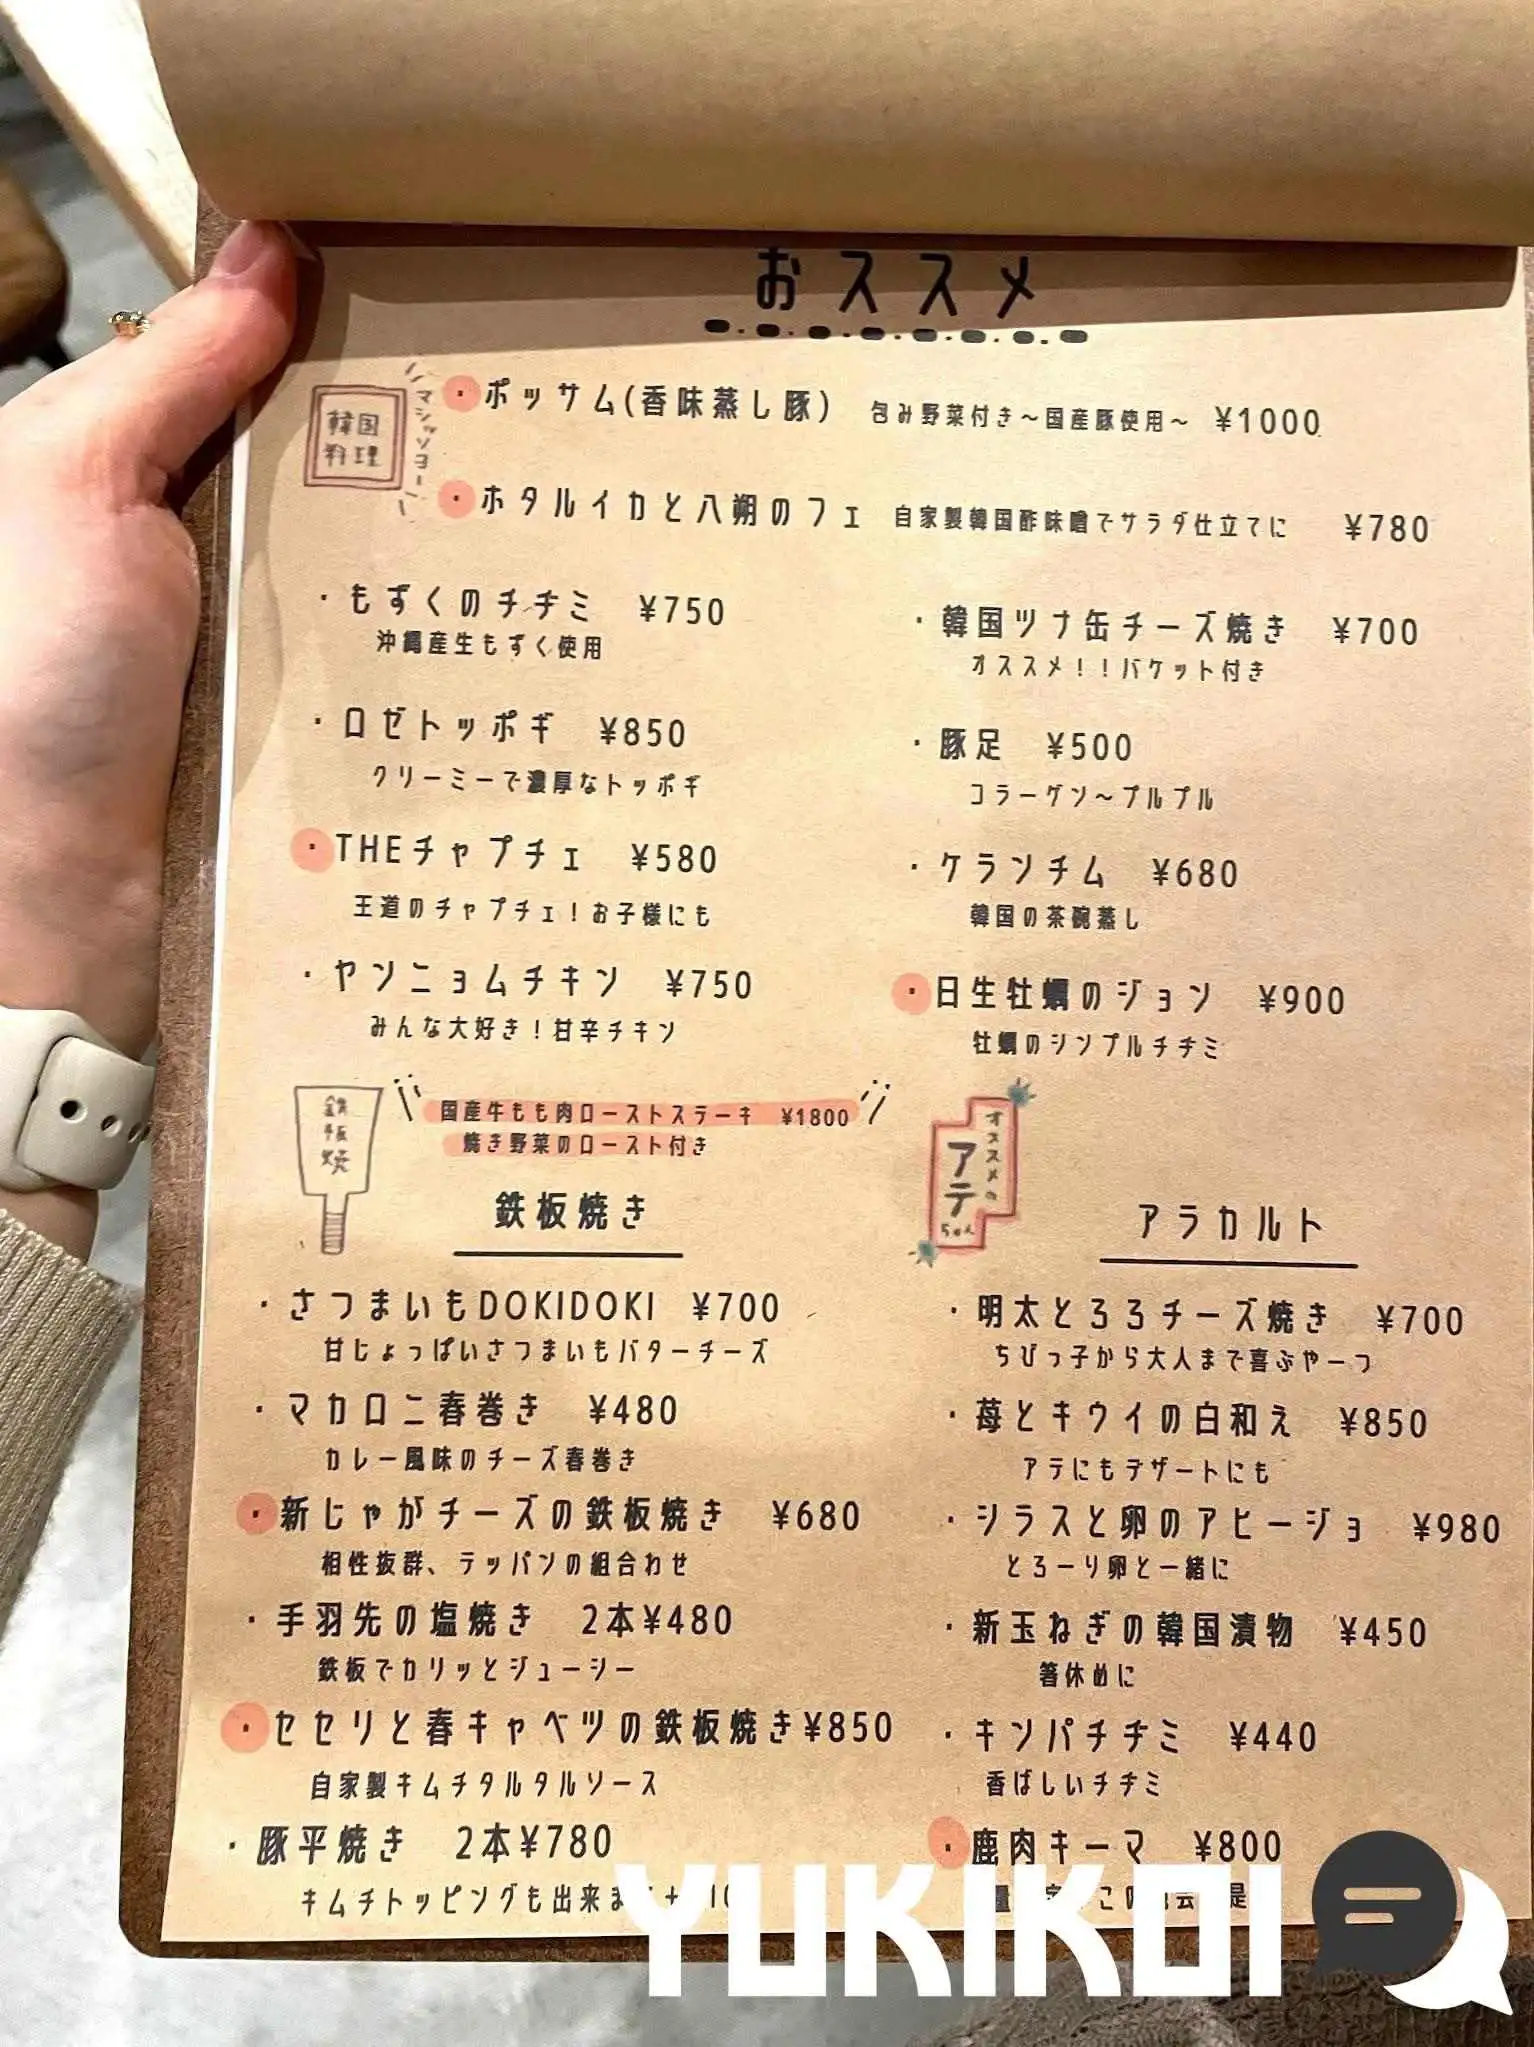 おススメ
韓国
料理
マシッソヨー
・ポッサム(香味蒸し豚) 包み野菜付き〜国産豚使用〜 ¥1000
・ホタルイカと八朔のフェ 自家製韓国酢味噌でサラダ仕立てに ¥780
・もずくのチヂミ ¥750
沖縄産生もずく使用
・ロゼトッポギ ¥850
クリーミーで濃厚なトッポギ
・THEチャプチェ ¥580
王道のチャプチェ!お子様にも
・ヤンニョムチキン ¥750
みんな大好き!甘辛チキン
・韓国ツナ缶チーズ焼き ¥700
オススメ!!バケット付き
・豚足 ¥500
コラーゲン〜プルプル
・ケランチム ¥680
韓国の茶碗蒸し
・日生牡蠣のジョン ¥900
牡蠣のシンプルチヂミ
鉄板焼
国産牛もも肉ローストステーキ ¥1800
焼き野菜のロースト付き
鉄板焼き
・さつまいもDOKIDOKI ¥700
甘じょっぱいさつまいもバターチーズ
・マカロニ春巻き ¥480
カレー風味のチーズ春巻き
・新じゃがチーズの鉄板焼き ¥680
相性抜群、テッパンの組合わせ
・手羽先の塩焼き 2本¥480
鉄板でカリッとジューシー
・セセリと春キャベツの鉄板焼き¥850
自家製キムチタルタルソース
・豚平焼き 2本¥780
キムチトッピングも出来ま
オススメの
アテ
ちゃん
アラカルト
・明太とろろチーズ焼き ¥700
ちびっ子から大人まで喜ぶやーつ
・苺とキウイの白和え ¥850
アテにもデザートにも
・シラスと卵のアヒージョ ¥980
とろーり卵と一緒に
・新玉ねぎの韓国漬物 ¥450
箸休めに
・キンパチヂミ ¥440
香ばしいチヂミ
・鹿肉キーマ ¥800
YUKIKOI